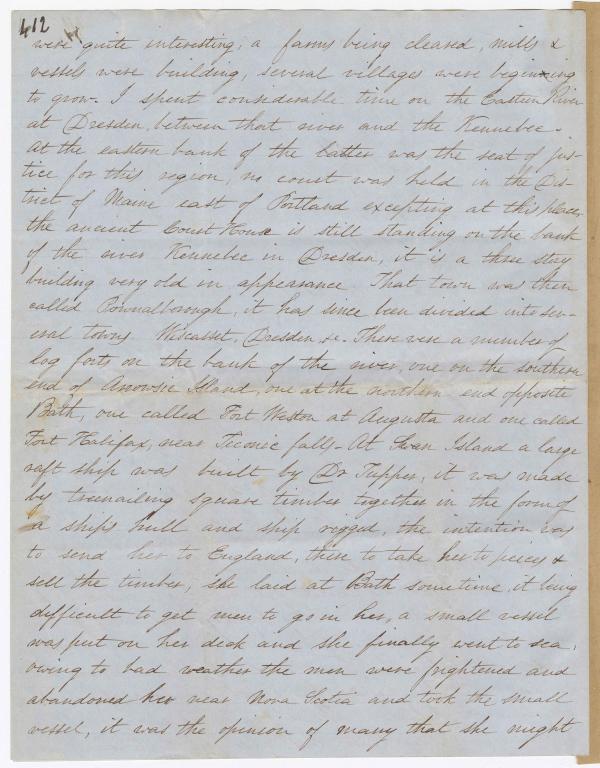 412
were quite interesting, a farms being cleared, mills &
vessels were building, several villages were beginning
to grow - I spent considerable time on the Eastern River
at Dresden, between that river and the Kennebec -
At the eastern bank of the latter was the seat of jus-
tice for this region, no court was held in the Dis-
trict of Maine east of Portland excepting at this place,
the ancient Court House is still standing on the bank
of the river Kennebec in Dresden, it is a three story
building very old in appearance That town was then
called Pownalborough, it has since been divided into sev-
eral towns Wiscasset, Dresden &c - There were a number of
log forts on the bank of the river, one on the southern
end of Arrowsic Island, one at the northern end opposite
Bath, one called Fort Weston at Augusta and one called
Fort Halifax, near Ticonic falls - At Swan Island a large
raft ship was built by Dr Tupper, it was made
by treenailing square timber together in the form of
a ships hull and ship rigged, the intention was
to send her to England, there to take her to pieces &
sell the timber, she laid at Bath sometime, it being
difficult to get men to go in her, a small vessel
was put on her deck and she finally went to sea,
owing to bad weather the men were frightened and
abandoned her near Nova Scotia and took the small
vessel, it was the opinion of many that she might